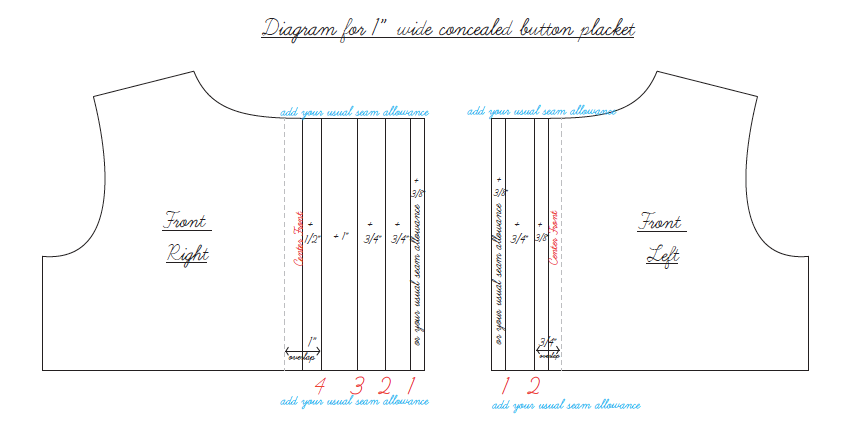 Diagram for 1" wide concealed button placket
add your usual seam allowance
add your usual seam allowance
Front
Right
Center Front
+
1/2"
+ 1"
+
3/4"
+
3/4"
+
3/8"
or your usual seam allowance
1"
overlap
4 3 2 1
add your usual seam allowance
+
3/8"
or your usual seam allowance
+
3/4"
+
3/8"
Center Front
Front
Left
3/4"
overlap
1 2
add your usual seam allowance